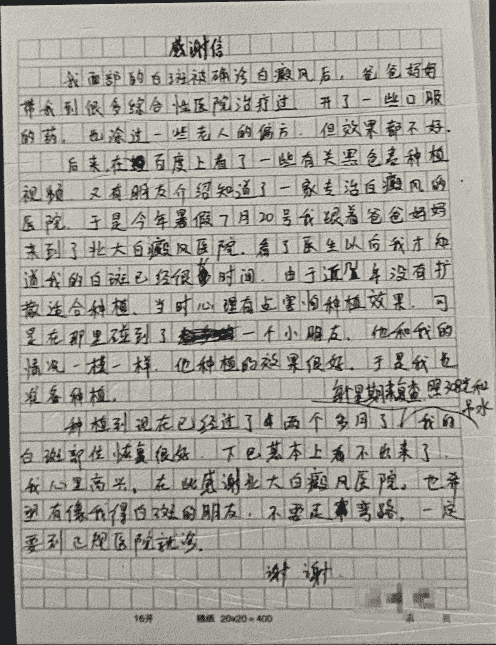 感谢信
我面部的白斑被确诊白癜风后，爸爸妈妈
带我到很多综合性医院治疗过 开了一些口服
的药，也涂过一些老人的偏方，但效果都不好。
后来，在百度上看了一些有关黑色素种植
视频 又有朋友介绍知道了一家专治白癜风的
医院，于是今年暑假7月20号我跟着爸爸妈妈
来到了北大白癜风医院，看了医生以后我才知
道我的白斑已经很 时间，由于近 年没有扩
散适合种植，当时心理有点害怕种植效果，可
是在那里碰到了 一个小朋友，他和我的
情况一模一样，他种植的效果很好，于是我也
准备种植。
每星期来复查 照308光和
吊水
种植到现在已经过了两个多月了，我的
白斑部位恢复很好，下巴基本上看不出来了，
我心里高兴，在此感谢北大白癜风医院。也希
望有像我得白斑的朋友，不要走弯路，一定
要到正规医院就诊。
谢谢
16开 20×20=400 页